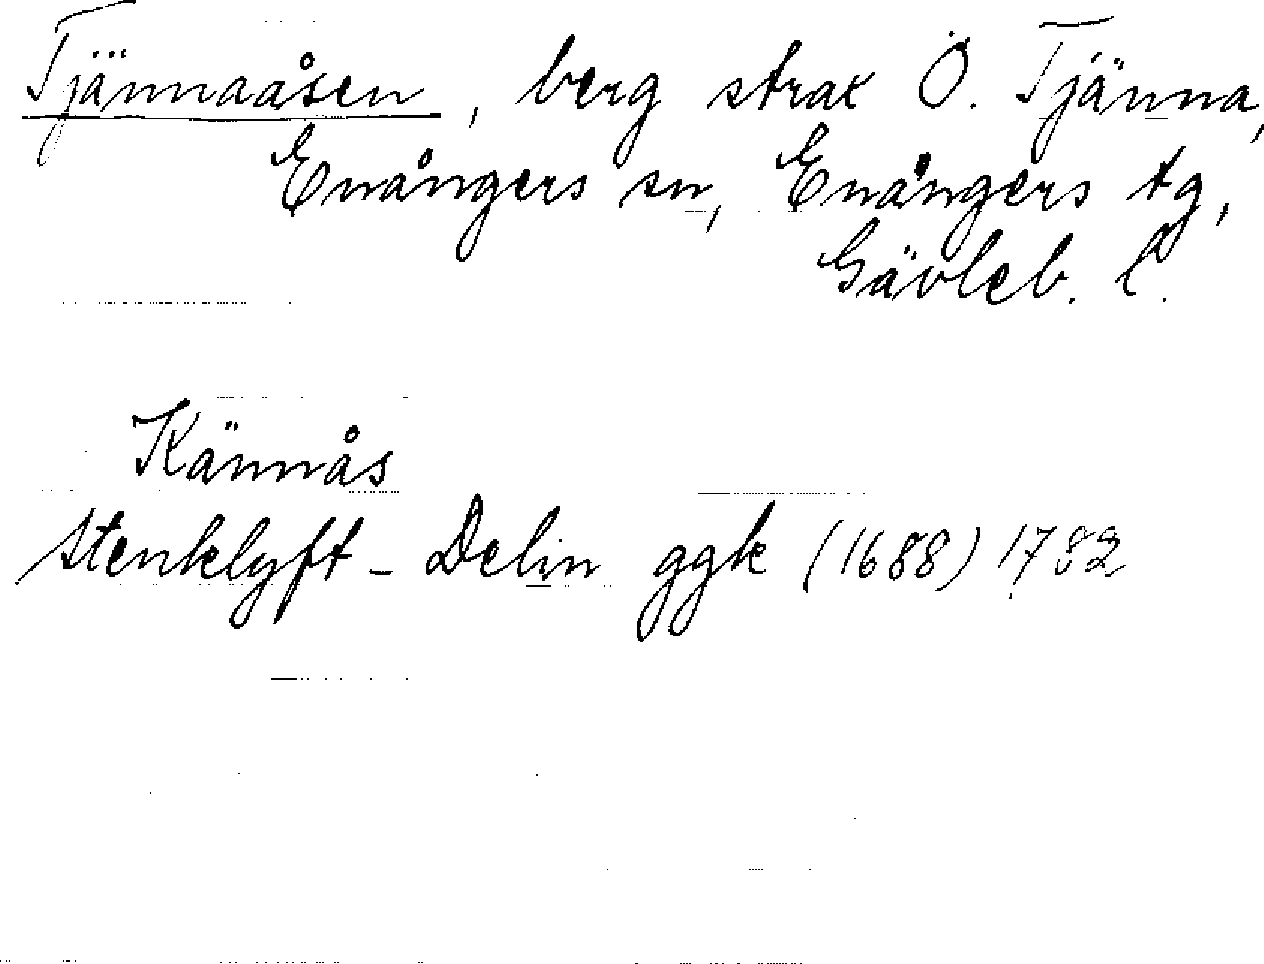 Tjännaåsen, berg strax Ö. Tjänna,
Enångers sn, Enångers tg,
Gävleb. l.
Kännås
Stenklyft - Delin ggk (1688) 1782